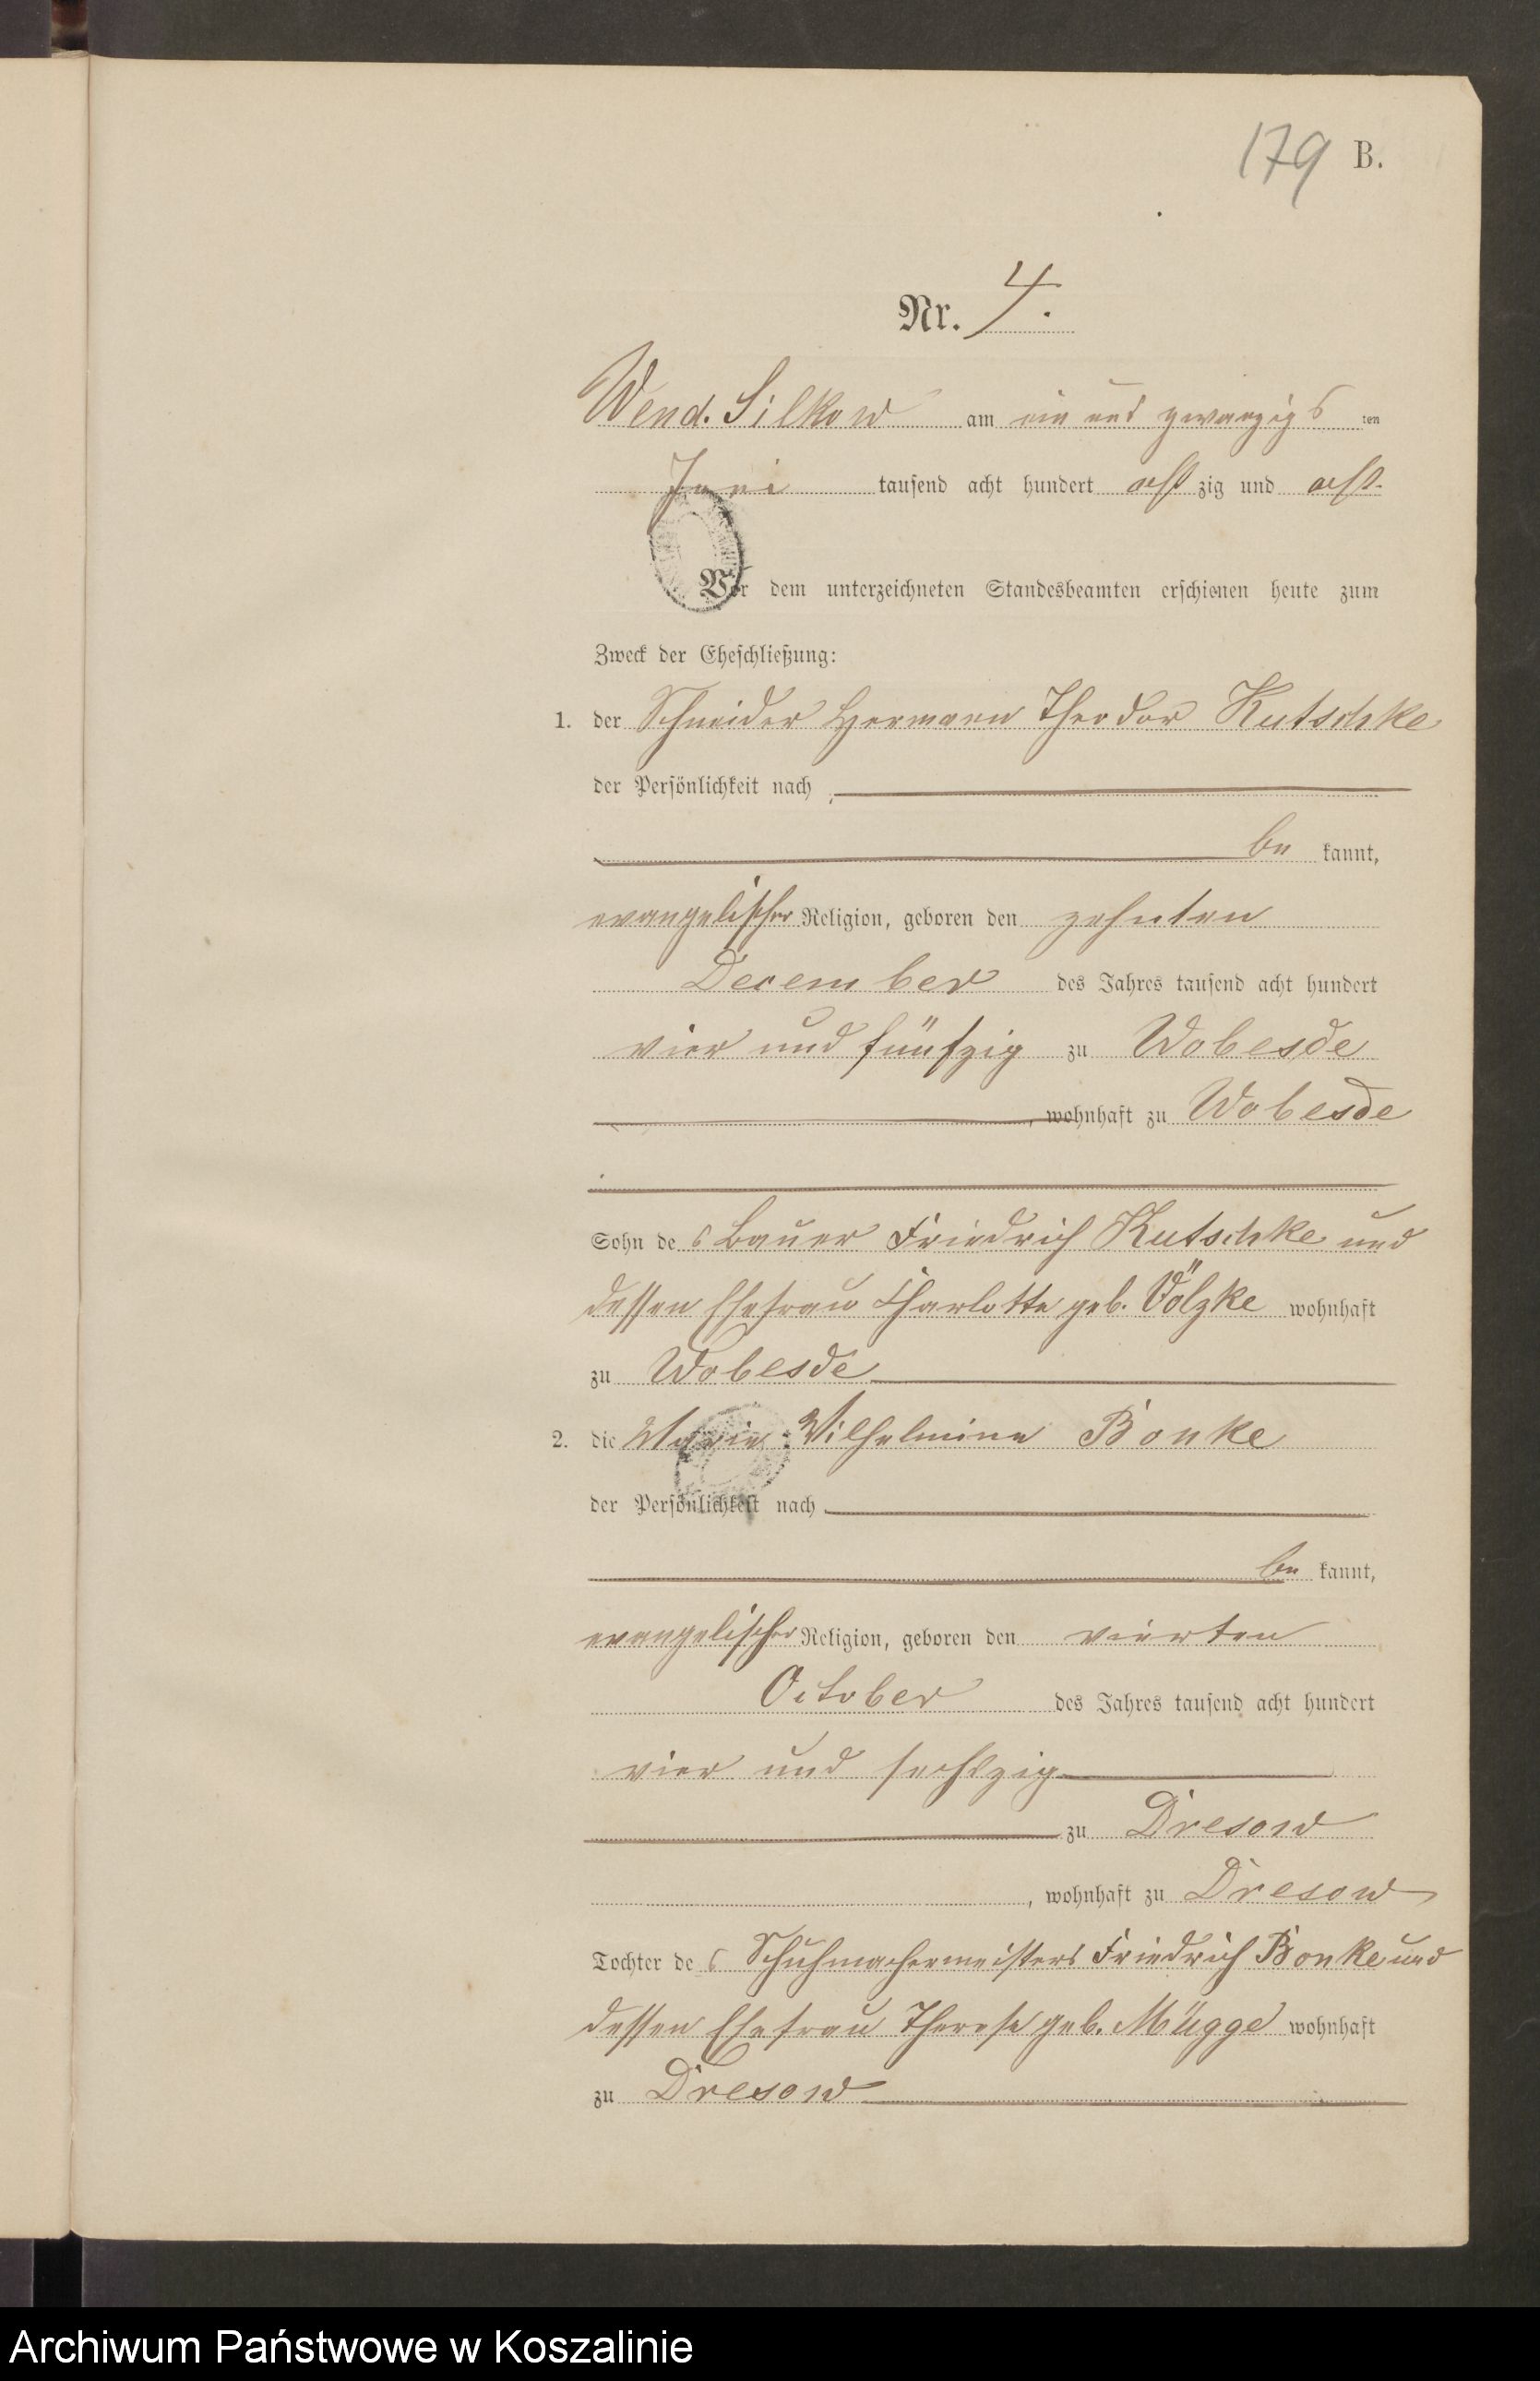 179 B.
Nr. 4.
Wend. Silkow am ein und zwanzigs ten
Juni tausend acht hundert acht zig und acht
Vor dem unterzeichneten Standesbeamten erschienen heute zum
Zweck der Eheschließung:
1. der Schneider Hermann Theodor Kutschke
der Persönlichkeit nach
be kannt,
evangelischer Religion, geboren den zehnten
December des Jahres tausend acht hundert
vier und fünfzig zu Wobesde
, wohnhaft zu Wobesde
Sohn de s Bauer Friedrich Kutschke und
dessen Ehefrau Charlotte geb. Völzke wohnhaft
zu Wobesde
2. die Marie Wilhelmine Bonke
der Persönlichkeit nach
be kannt,
evangelischer Religion, geboren den vierten
October des Jahres tausend acht hundert
vier und sechszig
zu Dresow
, wohnhaft zu Dresow
Tochter de s Schuhmachermeisters Friedrich Bonke und
dessen Ehefrau Therese geb. Mügge wohnhaft
zu Dresow
Archiwum Państwowe w Koszalinie